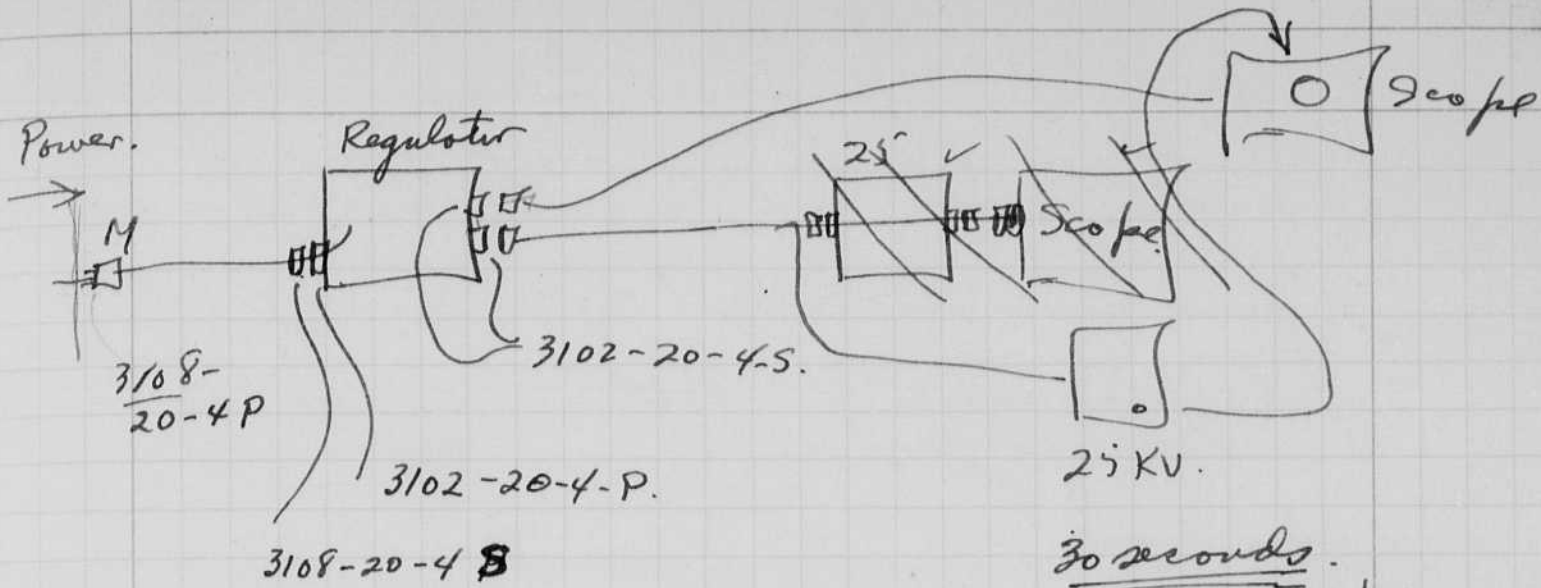 Power.
M
3108-
20-4 P
Regulator
3108-20-4 S
3102-20-4-P.
3102-20-4-S.
25
Scope
Scope
25 KV.
30 seconds.